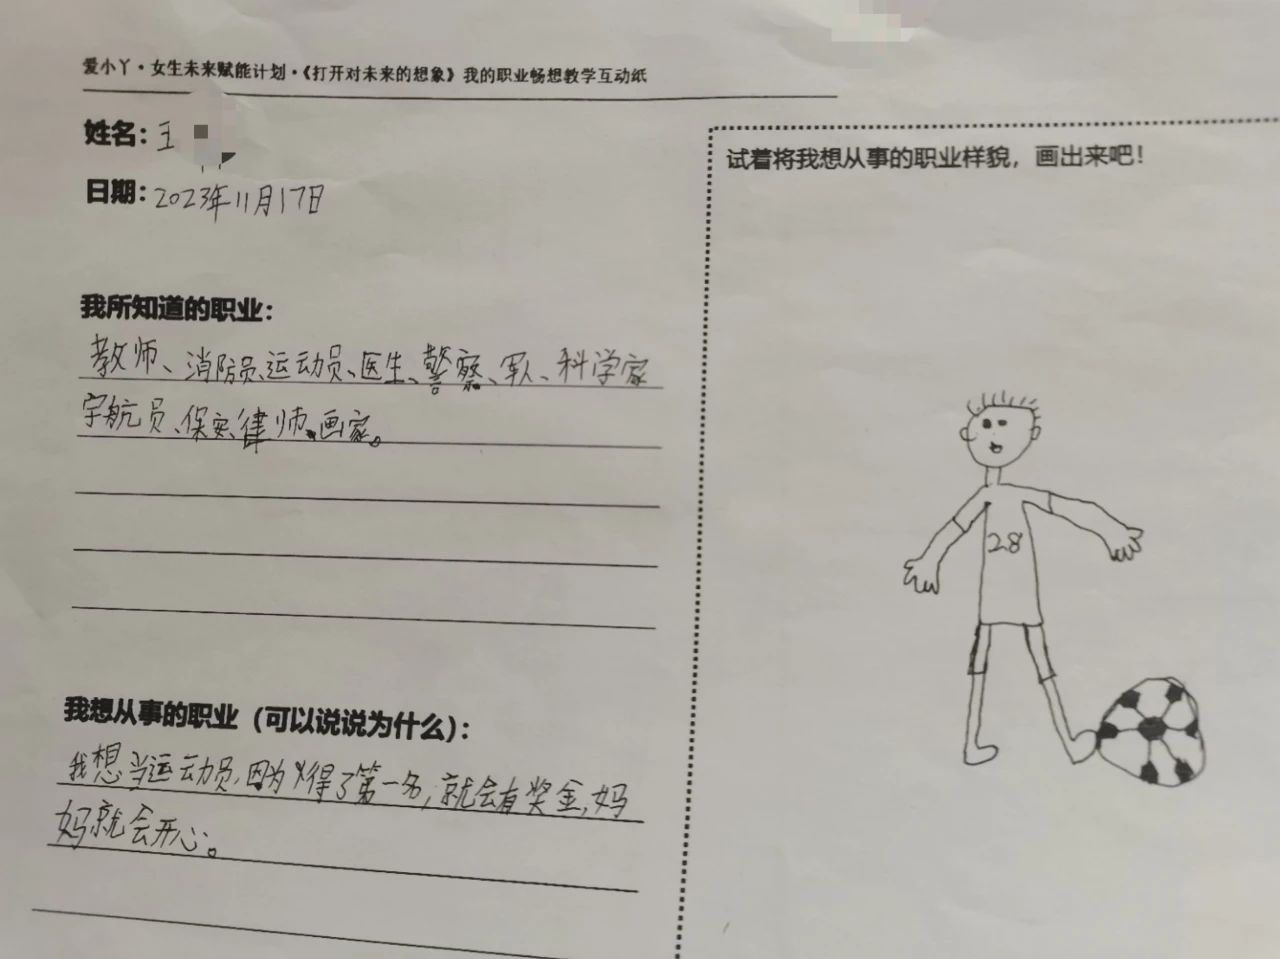 爱小丫·女生未来赋能计划·《打开对未来的想象》我的职业畅想教学互动纸
姓名：王
日期：2023年11月17日
我所知道的职业：
教师、消防员、运动员、医生、警察、军人、科学家
宇航员、保安、律师、画家。
我想从事的职业（可以说说为什么）：
我想当运动员，因为得了第一名，就会有奖金，妈
妈就会开心。
试着将我想从事的职业样貌，画出来吧！
28